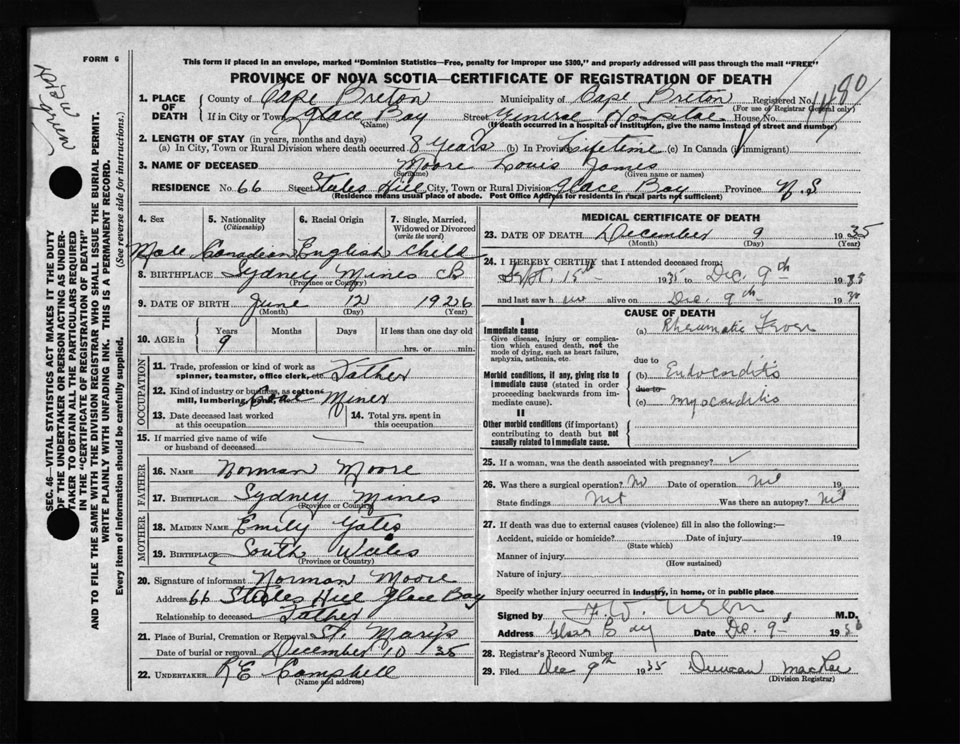 FORM 6
This form if placed in an envelope, marked "Dominion Statistics—Free, penalty for improper use $300," and properly addressed will pass through the mail "FREE"
PROVINCE OF NOVA SCOTIA—CERTIFICATE OF REGISTRATION OF DEATH
1. PLACE OF DEATH
County of Cape Breton Municipality of Cape Breton Registered No.
(For use of Registrar General only)
If in City or Town Glace Bay Street General Hospital House No.
(Name) (If death occurred in a hospital or institution, give the name instead of street and number)
2. LENGTH OF STAY (in years, months and days)
(a) In City, Town or Rural Division where death occurred 8 years (b) In Province Lifetime (c) In Canada (if immigrant)
3. NAME OF DECEASED Moore Louis James
(Surname) (Given name or names)
RESIDENCE No. 66 Street Hill City, Town or Rural Division Glace Bay Province N.S
(Residence means usual place of abode. Post Office Address for residents in rural parts not sufficient)
4. Sex
Male
5. Nationality
(Citizenship)
Canadian
6. Racial Origin
English
7. Single, Married, Widowed or Divorced
(write the word)
Child
8. BIRTHPLACE Sydney Mines CB
(Province or Country)
9. DATE OF BIRTH June 12 1926
(Month) (Day) (Year)
10. AGE in
Years Months Days If less than one day old
9 hrs. or min.
OCCUPATION
11. Trade, profession or kind of work as spinner, teamster, office clerk, etc. Father
12. Kind of industry or business, as cotton-mill, lumbering, bank, etc. Coal Miner
13. Date deceased last worked at this occupation
14. Total yrs. spent in this occupation
15. If married give name of wife or husband of deceased
FATHER
16. NAME Norman Moore
17. BIRTHPLACE Sydney Mines
(Province or Country)
MOTHER
18. MAIDEN NAME Emily Yates
19. BIRTHPLACE South Wales
(Province or Country)
20. Signature of informant Norman Moore
Address 66 Hill Glace Bay
Relationship to deceased Father
21. Place of Burial, Cremation or Removal St. Mary's
Date of burial or removal December 10 35
22. UNDERTAKER RE Campbell
(Name and address)
MEDICAL CERTIFICATE OF DEATH
23. DATE OF DEATH December 9 1935
(Month) (Day) (Year)
24. I HEREBY CERTIFY that I attended deceased from:
Sept. 15th 1935 to Dec. 9th 1935
and last saw h im alive on Dec. 9th 19
CAUSE OF DEATH
I
Immediate cause
Give disease, injury or complication which caused death, not the mode of dying, such as heart failure, asphyxia, asthenia, etc.
(a) Rheumatic Fever
due to
Morbid conditions, if any, giving rise to immediate cause (stated in order proceeding backwards from immediate cause).
(b) Endocarditis
due to
(c) Myocarditis
II
Other morbid conditions (if important) contributing to death but not causally related to immediate cause.
25. If a woman, was the death associated with pregnancy?
26. Was there a surgical operation? No Date of operation Nil 19
State findings Nil Was there an autopsy? Nil
27. If death was due to external causes (violence) fill in also the following:—
Accident, suicide or homicide? Date of injury 19
(State which)
Manner of injury
(How sustained)
Nature of injury
Specify whether injury occurred in industry, in home, or in public place
Signed by F. W. M.D.
Address Glace Bay Date Dec. 9 19
28. Registrar's Record Number
29. Filed Dec 9th 1935 Duncan MacRae
(Division Registrar)
SEC. 46—VITAL STATISTICS ACT MAKES IT THE DUTY
OF THE UNDERTAKER OR PERSON ACTING AS UNDER-
TAKER TO OBTAIN ALL THE PARTICULARS REQUIRED
IN THE "CERTIFICATE OF REGISTRATION OF DEATH"
AND TO FILE THE SAME WITH THE DIVISION REGISTRAR WHO SHALL ISSUE THE BURIAL PERMIT.
WRITE PLAINLY WITH UNFADING INK. THIS IS A PERMANENT RECORD.
Every item of information should be carefully supplied. (See reverse side for instructions.)